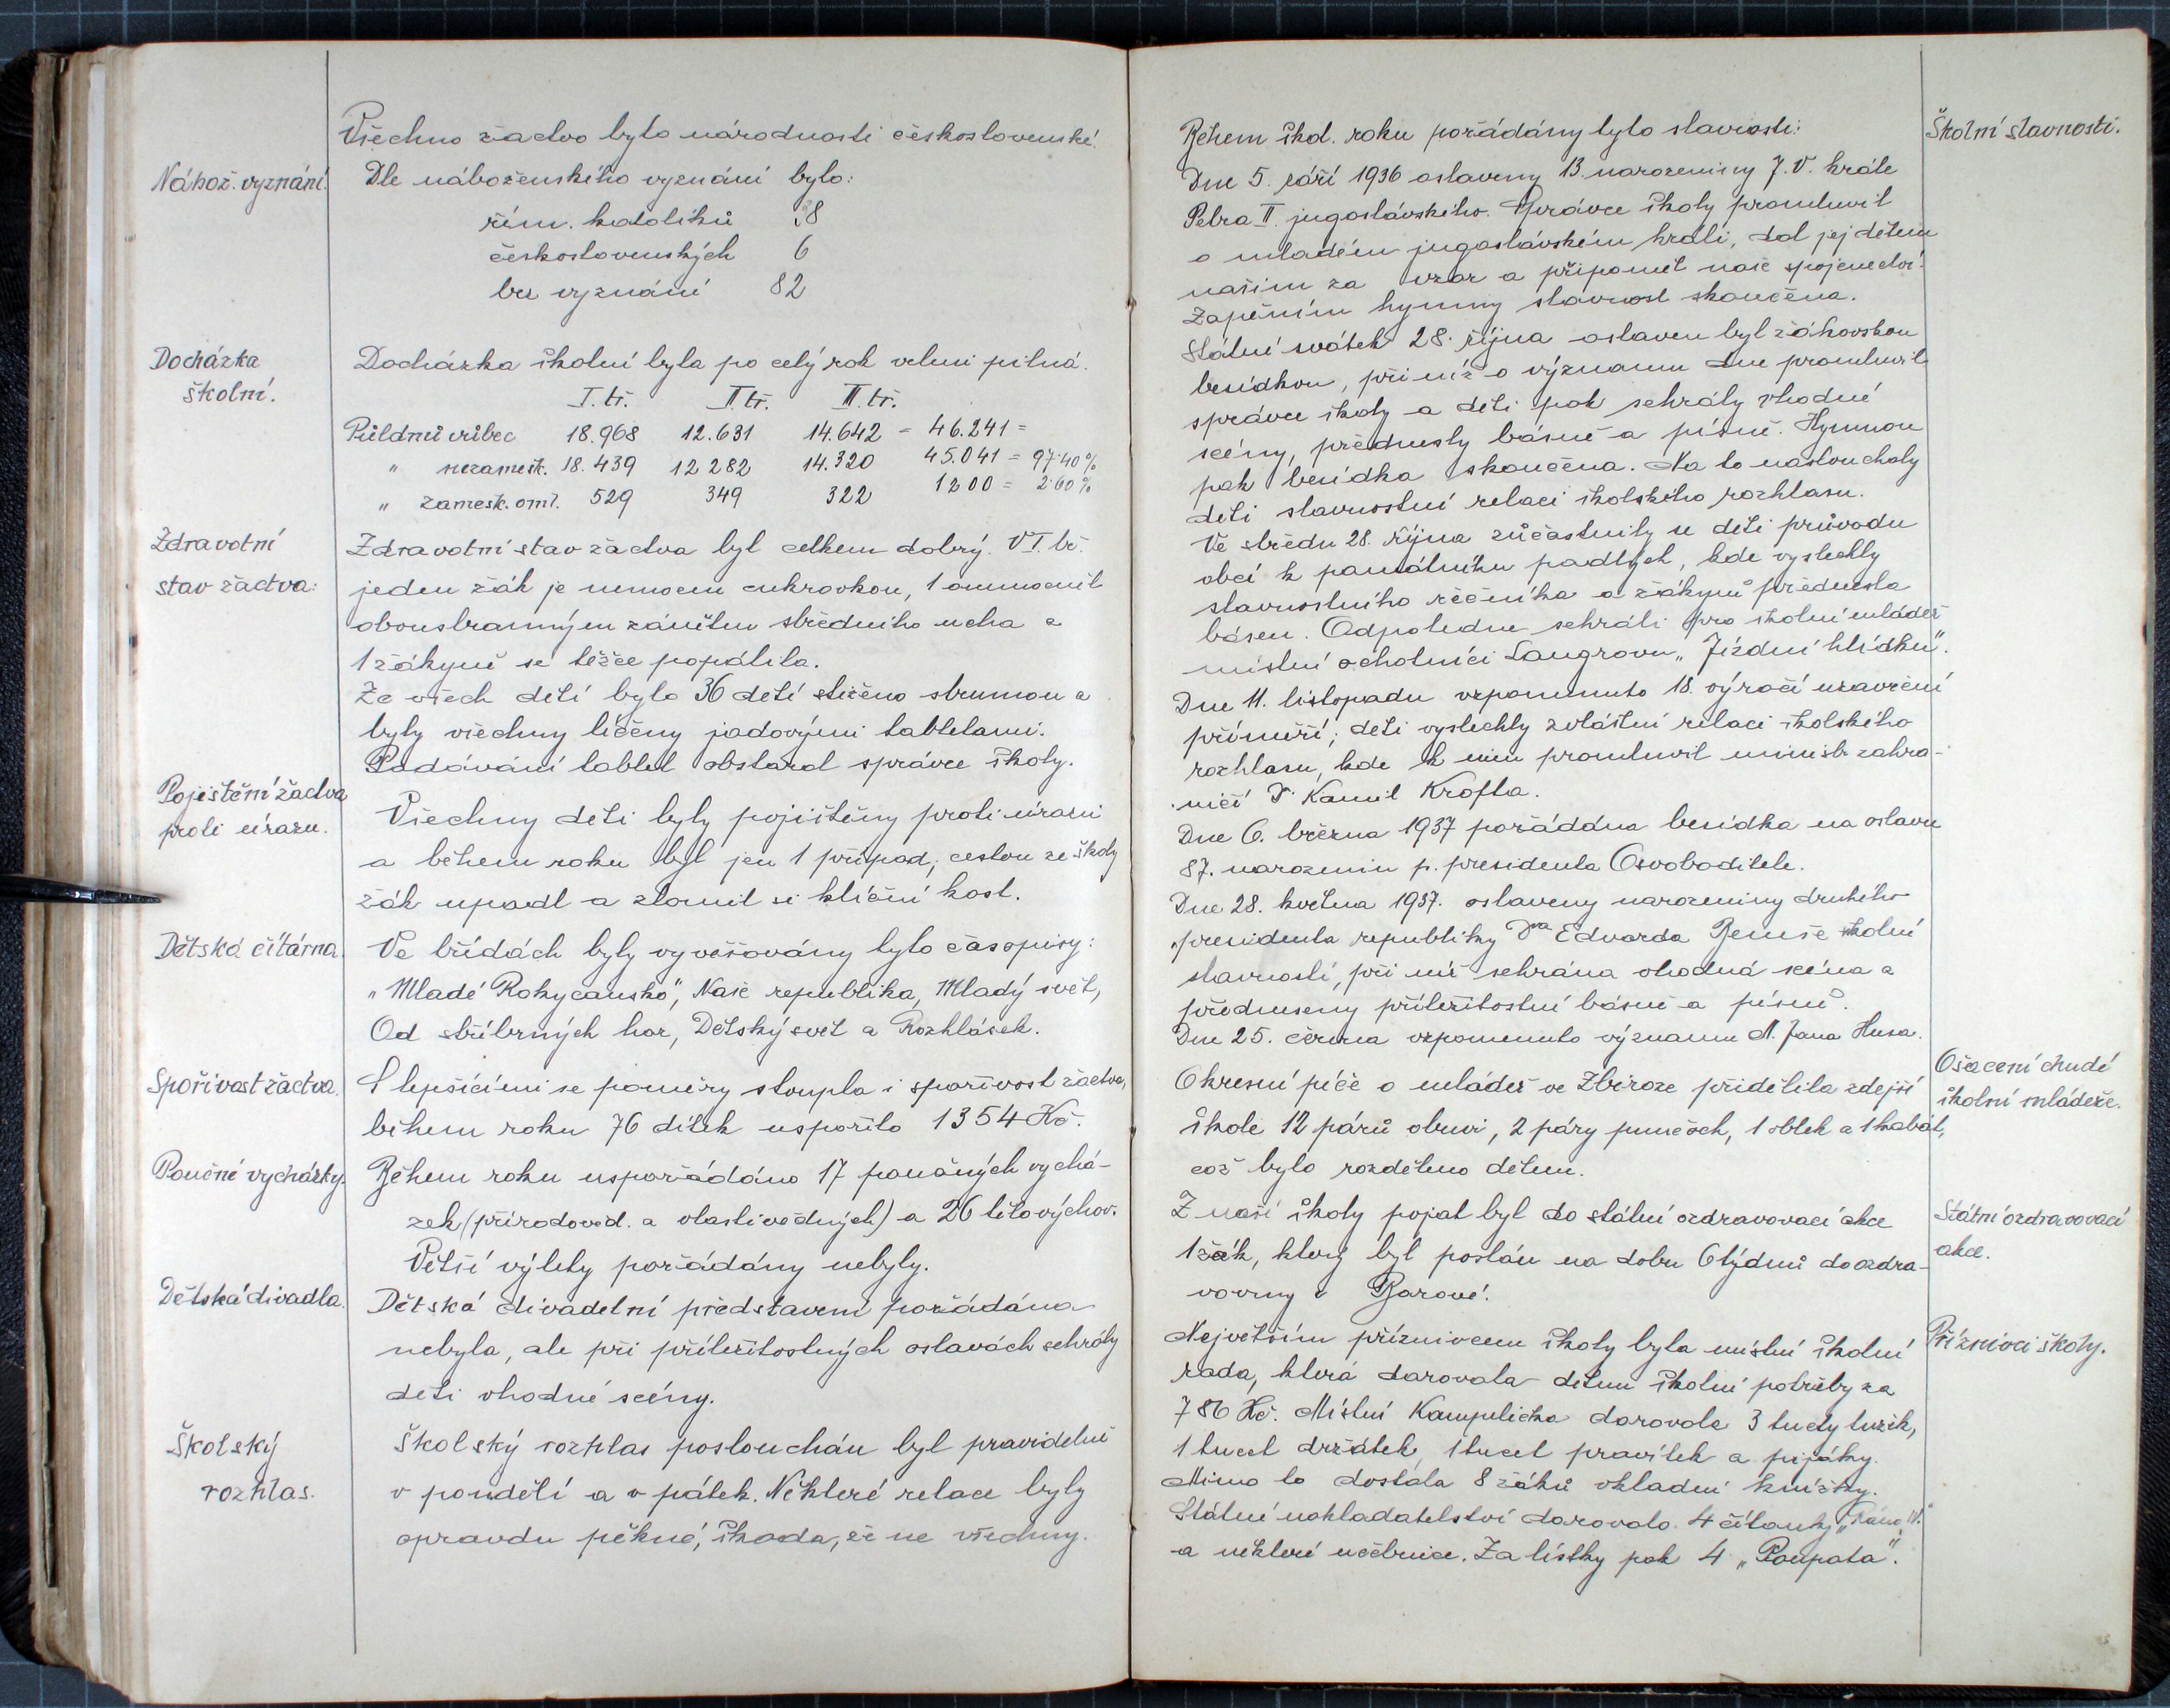 Všechno žactvo bylo národnosti československé.
Nábož. vyznání.
Dle náboženského vyznání bylo:
řím. katolíků 38
československých 6
bez vyznání 82
Docházka
školní.
Docházka školní byla po celý rok velmi pilná.
I. tř. II. tř. III. tř.
Půldnů vůbec 18.968 12.631 14.642 = 46.241 =
" nezamešk. 18.439 12 282 14.320 45.041 = 97·40%
" zamešk. oml. 529 349 322 1200 = 2·60%
Zdravotní
stav žactva:
Zdravotní stav žactva byl celkem dobrý. V I. tř.
jeden žák je nemocen cukrovkou, 1 onemocněl
oboustranným zánětem středního ucha a
1 žákyně se těžce popálila.
Ze všech dětí bylo 36 dětí stiženo strumou a
byly všechny léčeny jodovými tabletami.
Podávání tablet obstaral správce školy.
Pojištění žactva
proti úrazu.
Všechny děti byly pojištěny proti úrazu
a během roku byl jen 1 případ; cestou ze školy
žák upadl a zlomil si klíční kost.
Dětská čítárna.
Ve třídách byly vyvěšovány tyto časopisy:
"Mladé Rokycansko", Naše republika, Mladý svět,
Od stříbrných hor, Dětský svět a Rozhlásek.
Spořivost žactva.
S lepšícími se poměry stoupla i spořivost žactva,
během roku 76 dítek uspořilo 1354 Kč.
Poučné vycházky.
Během roku uspořádáno 17 poučných vychá-
zek (přírodověd. a vlastivědných) a 26 tělovýchov.
Větší výlety pořádány nebyly.
Dětská divadla.
Dětská divadelní představení pořádána
nebyla, ale při příležitostných oslavách sehrály
děti vhodné scény.
Školský
rozhlas.
Školský rozhlas poslouchán byl pravidelně
v pondělí a v pátek. Některé relace byly
opravdu pěkné, škoda, že ne všechny.
Během škol. roku pořádány tyto slavnosti:
Školní slavnosti.
Dne 5. září 1936 oslaveny 13. narozeniny J. V. krále
Petra II. jugoslávského. Správce školy promluvil
o mladém jugoslávském králi, dal jej dětem
našim za vzor a připomněl naše spojenectví.
Zapěním hymny slavnost skončena.
Státní svátek 28. října oslaven byl žákovskou
besídkou, při níž o významu dne promluvil
správce školy a děti pak sehrály vhodné
scény, přednesly básně a písně. Hymnou
pak besídka skončena. Na to naslouchaly
děti slavnostní relaci školského rozhlasu.
Ve středu 28. října zúčastnily se děti průvodu
obcí k památníku padlých, kde vyslechly
slavnostního řečníka a žákyně přednesla
báseň. Odpoledne sehráli pro školní mládež
místní ochotníci Langrovu "Jízdní hlídku".
Dne 11. listopadu vzpomenuto 18. výročí uzavření
příměří; děti vyslechly zvláštní relaci školského
rozhlasu, kde k nim promluvil ministr zahra-
ničí Dr Kamil Krofta.
Dne 6. března 1937 pořádána besídka na oslavu
87. narozenin p. presidenta Osvoboditele.
Dne 28. května 1937. oslaveny narozeniny druhého
presidenta republiky Dra Edvarda Beneše školní
slavností, při níž sehrána vhodná scéna a
předneseny příležitostní básně a písně.
Dne 25. června vzpomenuto významu M. Jana Husa.
Ošacení chudé
školní mládeže.
Okresní péče o mládež ve Zbiroze přidělila zdejší
škole 12 párů obuvi, 2 páry punčoch, 1 oblek a 1 kabát,
což bylo rozděleno dětem.
Státní ozdravovací
akce.
Z naší školy pojat byl do státní ozdravovací akce
1 žák, který byl poslán na dobu 6 týdnů do ozdra-
vovny v Borové.
Příznivci školy.
Největším příznivcem školy byla místní školní
rada, která darovala dětem školní potřeby za
786 Kč. Místní Kampelička darovala 3 tucty tužek,
1 tucet držátek, 1 tucet pravítek a pijáky.
Mimo to dostala 8 žáků vkladní knížky.
Státní nakladatelství darovalo 4 čítanky "Ráno" II.
a některé učebnice. Za lístky pak 4 "Poupata".